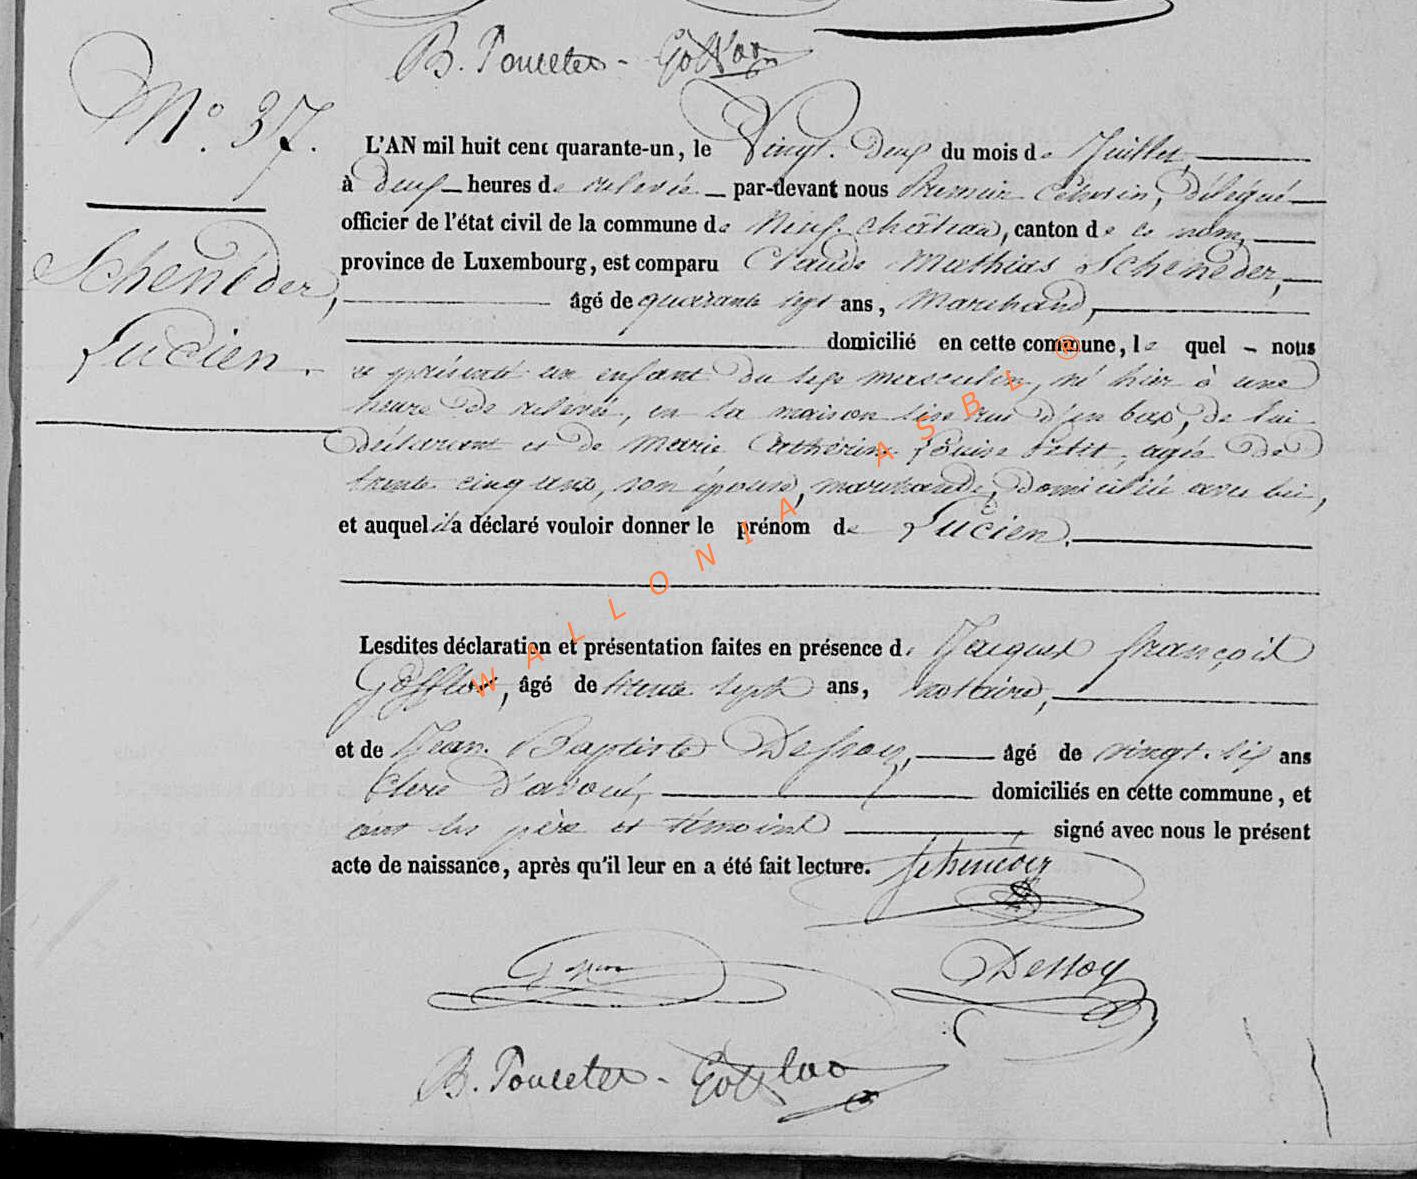 B. Poncelet -
N.° 37.
L'AN mil huit cent quarante-un, le Vingt-deux du mois de Juillet,
à deux heures de relevée par-devant nous Premier Echevin, délégué
officier de l'état civil de la commune de Neufchâteau, canton de ce nom,
province de Luxembourg, est comparu Claude Mathias Schenéder,
Schenéder,
âgé de quarante sept ans, Marchand,
domicilié en cette commune, le quel - nous
Lucien.
a présenté un enfant du sexe masculin, né hier à une
heure de relevée, en sa maison sise rue d'en bas, de lui
déclarant et de Marie Catherine Louise Petit, agée de
trente cinq ans, son épouse, marchande, domiciliée avec lui,
et auquel il a déclaré vouloir donner le prénom de Lucien.
Lesdites déclaration et présentation faites en présence de Jacques françois
âgé de trente sept ans, notaire,
et de Jean Baptiste Dessoy, âgé de vingt-six ans
Clerc d'avoué, domiciliés en cette commune, et
ont les père et témoins signé avec nous le présent
acte de naissance, après qu'il leur en a été fait lecture. Schenéder
Dessoy
B. Poncelet -
WALLONIA ASBL ®